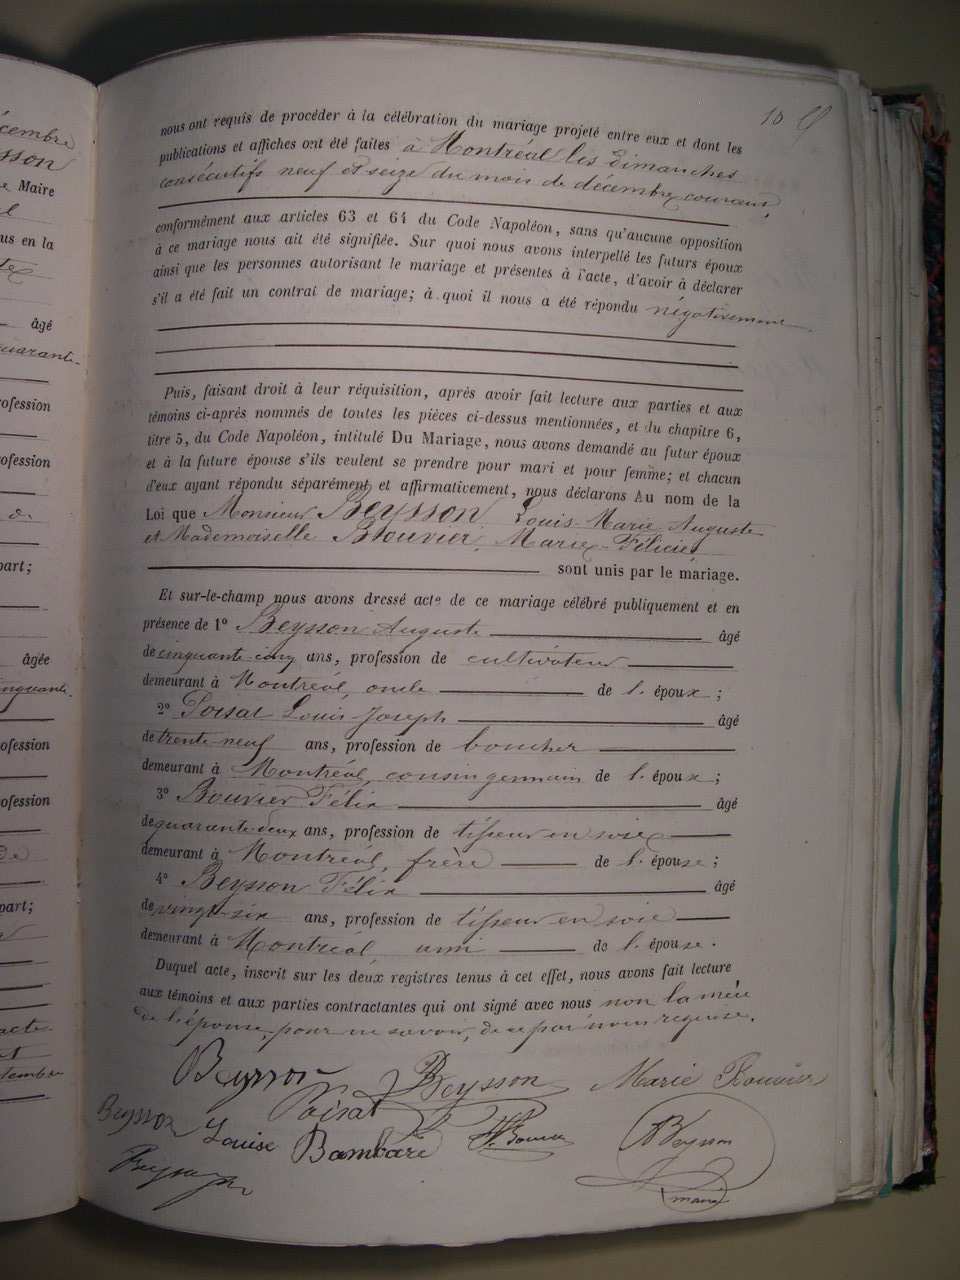 écembre
sson
Maire
us en la
âgé
quarante-
rofession
rofession
de
part;
âgée
inquante-
rofession
rofession
de
part;
acte
tembre
10
nous ont requis de procéder à la célébration du mariage projeté entre eux et dont les
publications et affiches ont été faites à Montréal les dimanches
consécutifs neuf et seize du mois de décembre courant,
conformément aux articles 63 et 64 du Code Napoléon, sans qu'aucune opposition
à ce mariage nous ait été signifiée. Sur quoi nous avons interpellé les futurs époux
ainsi que les personnes autorisant le mariage et présentes à l'acte, d'avoir à déclarer
s'il a été fait un contrat de mariage; à quoi il nous a été répondu négativement
Puis, faisant droit à leur réquisition, après avoir fait lecture aux parties et aux
témoins ci-après nommés de toutes les pièces ci-dessus mentionnées, et du chapitre 6,
titre 5, du Code Napoléon, intitulé Du Mariage, nous avons demandé au futur époux
et à la future épouse s'ils veulent se prendre pour mari et pour femme; et chacun
d'eux ayant répondu séparément et affirmativement, nous déclarons Au nom de la
Loi que Monsieur Beysson, Louis-Marie Auguste
et Mademoiselle Bouvier, Marie-Félicie,
sont unis par le mariage.
Et sur-le-champ nous avons dressé acte de ce mariage célébré publiquement et en
présence de 1° Beysson Auguste âgé
de cinquante-cinq ans, profession de cultivateur
demeurant à Montréal, oncle de l'époux;
2° Poisat Louis Joseph âgé
de trente-neuf ans, profession de boucher
demeurant à Montréal, cousin germain de l'époux;
3° Bouvier Félix âgé
de quarante-deux ans, profession de tisseur en soie
demeurant à Montréal, frère de l'épouse;
4° Beysson Félix âgé
de vingt-six ans, profession de tisseur en soie
demeurant à Montréal, ami de l'épouse.
Duquel acte, inscrit sur les deux registres tenus à cet effet, nous avons fait lecture
aux témoins et aux parties contractantes qui ont signé avec nous non la mère
de l'épouse, pour ne savoir, de ce par nous requise.
Beysson Beysson Marie Bouvier
Poisat
Beysson Louise Bambare Beysson
maire